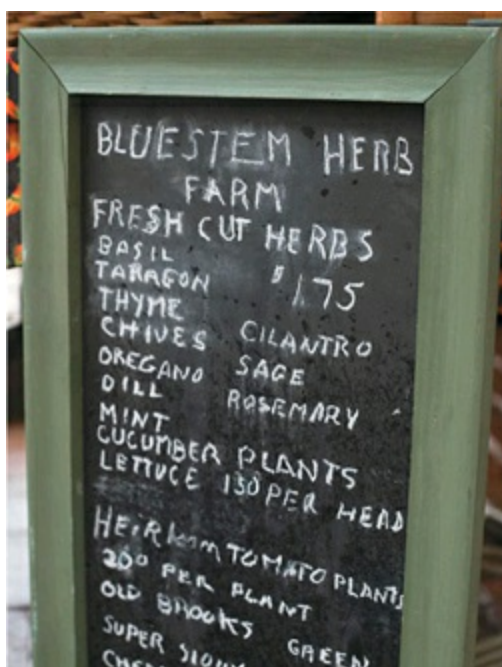 BLUESTEM HERB
FARM
FRESH CUT HERBS
BASIL $1.75
TARAGON
THYME
CHIVES CILANTRO
OREGANO SAGE
DILL ROSEMARY
MINT
CUCUMBER PLANTS
LETTUCE 150 PER HEAD
HEIRLOOM TOMATO PLANTS
200 PER PLANT
OLD BROOKS GREEN
SUPER